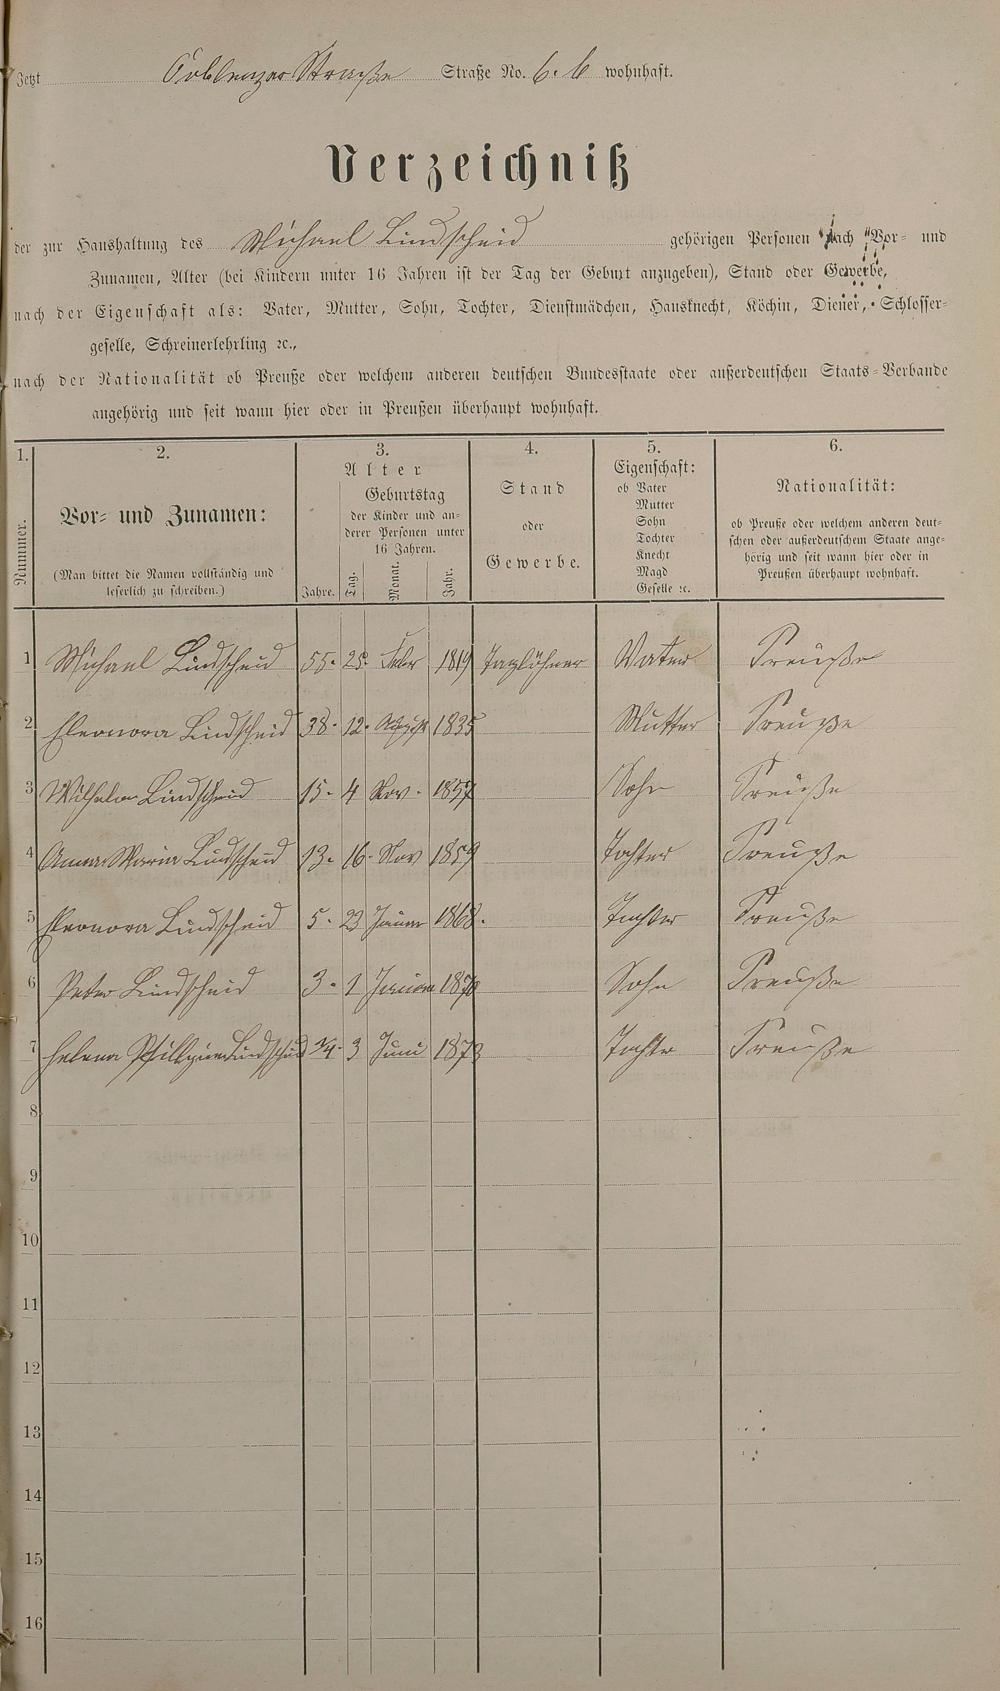 Jetzt Coblenzer Straße Straße No. 6. b wohnhaft.
Verzeichniß
der zur Haushaltung des Michael Lindscheid gehörigen Personen nach Vor- und
Zunamen, Alter (bei Kindern unter 16 Jahren ist der Tag der Geburt anzugeben), Stand oder Gewerbe,
nach der Eigenschaft als: Vater, Mutter, Sohn, Tochter, Dienstmädchen, Hausknecht, Köchin, Diener, Schlosser-
geselle, Schreinerlehrling ꝛc.,
nach der Nationalität ob Preuße oder welchem anderen deutschen Bundesstaate oder außerdeutschen Staats-Verbande
angehörig und seit wann hier oder in Preußen überhaupt wohnhaft.
1. 2. 3. 4. 5. 6.
Nummer.
Vor- und Zunamen:
(Man bittet die Namen vollständig und
leserlich zu schreiben.)
Alter
Jahre.
Geburtstag
der Kinder und an-
derer Personen unter
16 Jahren.
Tag. Monat. Jahr.
Stand
oder
Gewerbe.
Eigenschaft:
ob Vater
Mutter
Sohn
Tochter
Knecht
Magd
Geselle ꝛc.
Nationalität:
ob Preuße oder welchem anderen deut-
schen oder außerdeutschem Staate ange-
hörig und seit wann hier oder in
Preußen überhaupt wohnhaft.
1 Michael Lindscheid 55. 25. Febr 1819 Taglöhner Vater Preuße
2 Eleonora Lindscheid 38. 12. August 1835 Mutter Preuße
3 Wilhelm Lindscheid 15. 4 Nov. 1857 Sohn Preuße
4 Anna Maria Lindscheid 13. 16. Nov 1859 Tochter Preuße
5 Eleonora Lindscheid 5. 23 Januar 1868. Tochter Preuße
6 Peter Lindscheid 3. 1 Januar 1870 Sohn Preuße
7 Helena Lindscheid 3 Juni 1873 Tochter Preuße
8
9
10
11
12
13
14
15
16